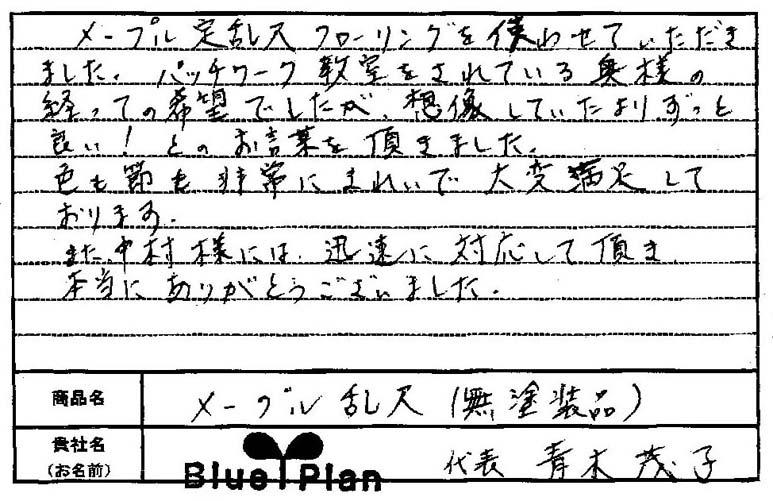 メープル定乱尺フローリングを使わせていただき
ました。パッチワーク教室をされている奥様の
経っての希望でしたが、想像していたよりずっと
良い！とのお言葉を頂きました。
色も節も非常にきれいで大変満足して
おります。
また、中村様には、迅速に対応して頂き、
本当にありがとうございました。
商品名 メープル乱尺（無塗装品）
貴社名
（お名前） Blue Plan 代表 青木茂子